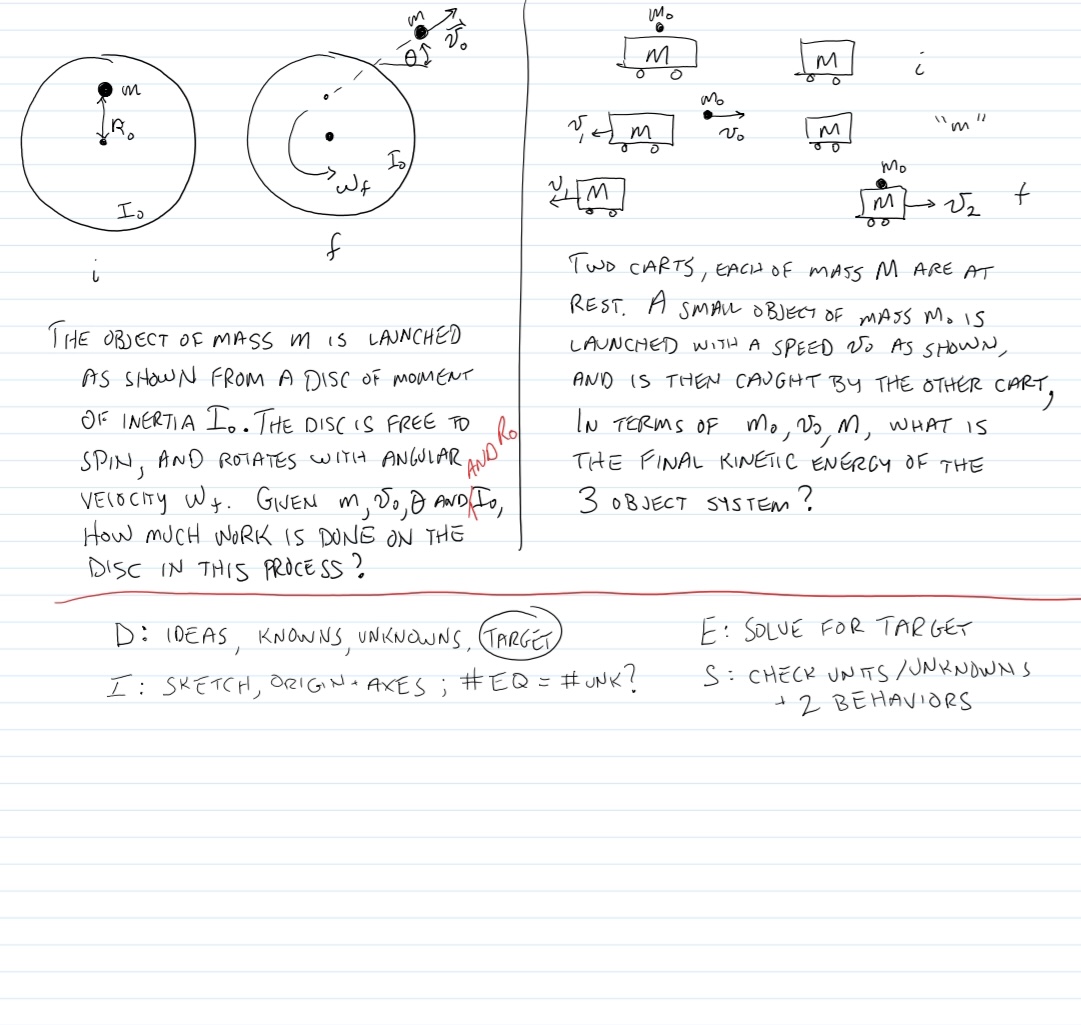 m
R₀
I₀
i
m
v₀
θ
I₀
ωf
f
THE OBJECT OF MASS m IS LAUNCHED
AS SHOWN FROM A DISC OF MOMENT
OF INERTIA I₀. THE DISC IS FREE TO
SPIN, AND ROTATES WITH ANGULAR
VELOCITY ωf. GIVEN m, v₀, θ AND I₀, AND R₀
HOW MUCH WORK IS DONE ON THE
DISC IN THIS PROCESS?
m₀
M M i
v₁ M m₀ v₀ M "m"
v₁ M m₀ M v₂ f
TWO CARTS, EACH OF MASS M ARE AT
REST. A SMALL OBJECT OF MASS M₀ IS
LAUNCHED WITH A SPEED v₀ AS SHOWN,
AND IS THEN CAUGHT BY THE OTHER CART,
IN TERMS OF M₀, v₀, M, WHAT IS
THE FINAL KINETIC ENERGY OF THE
3 OBJECT SYSTEM?
D: IDEAS, KNOWNS, UNKNOWNS, TARGET
I: SKETCH, ORIGIN + AXES; #EQ = #UNK?
E: SOLVE FOR TARGET
S: CHECK UNITS/UNKNOWNS
+ 2 BEHAVIORS